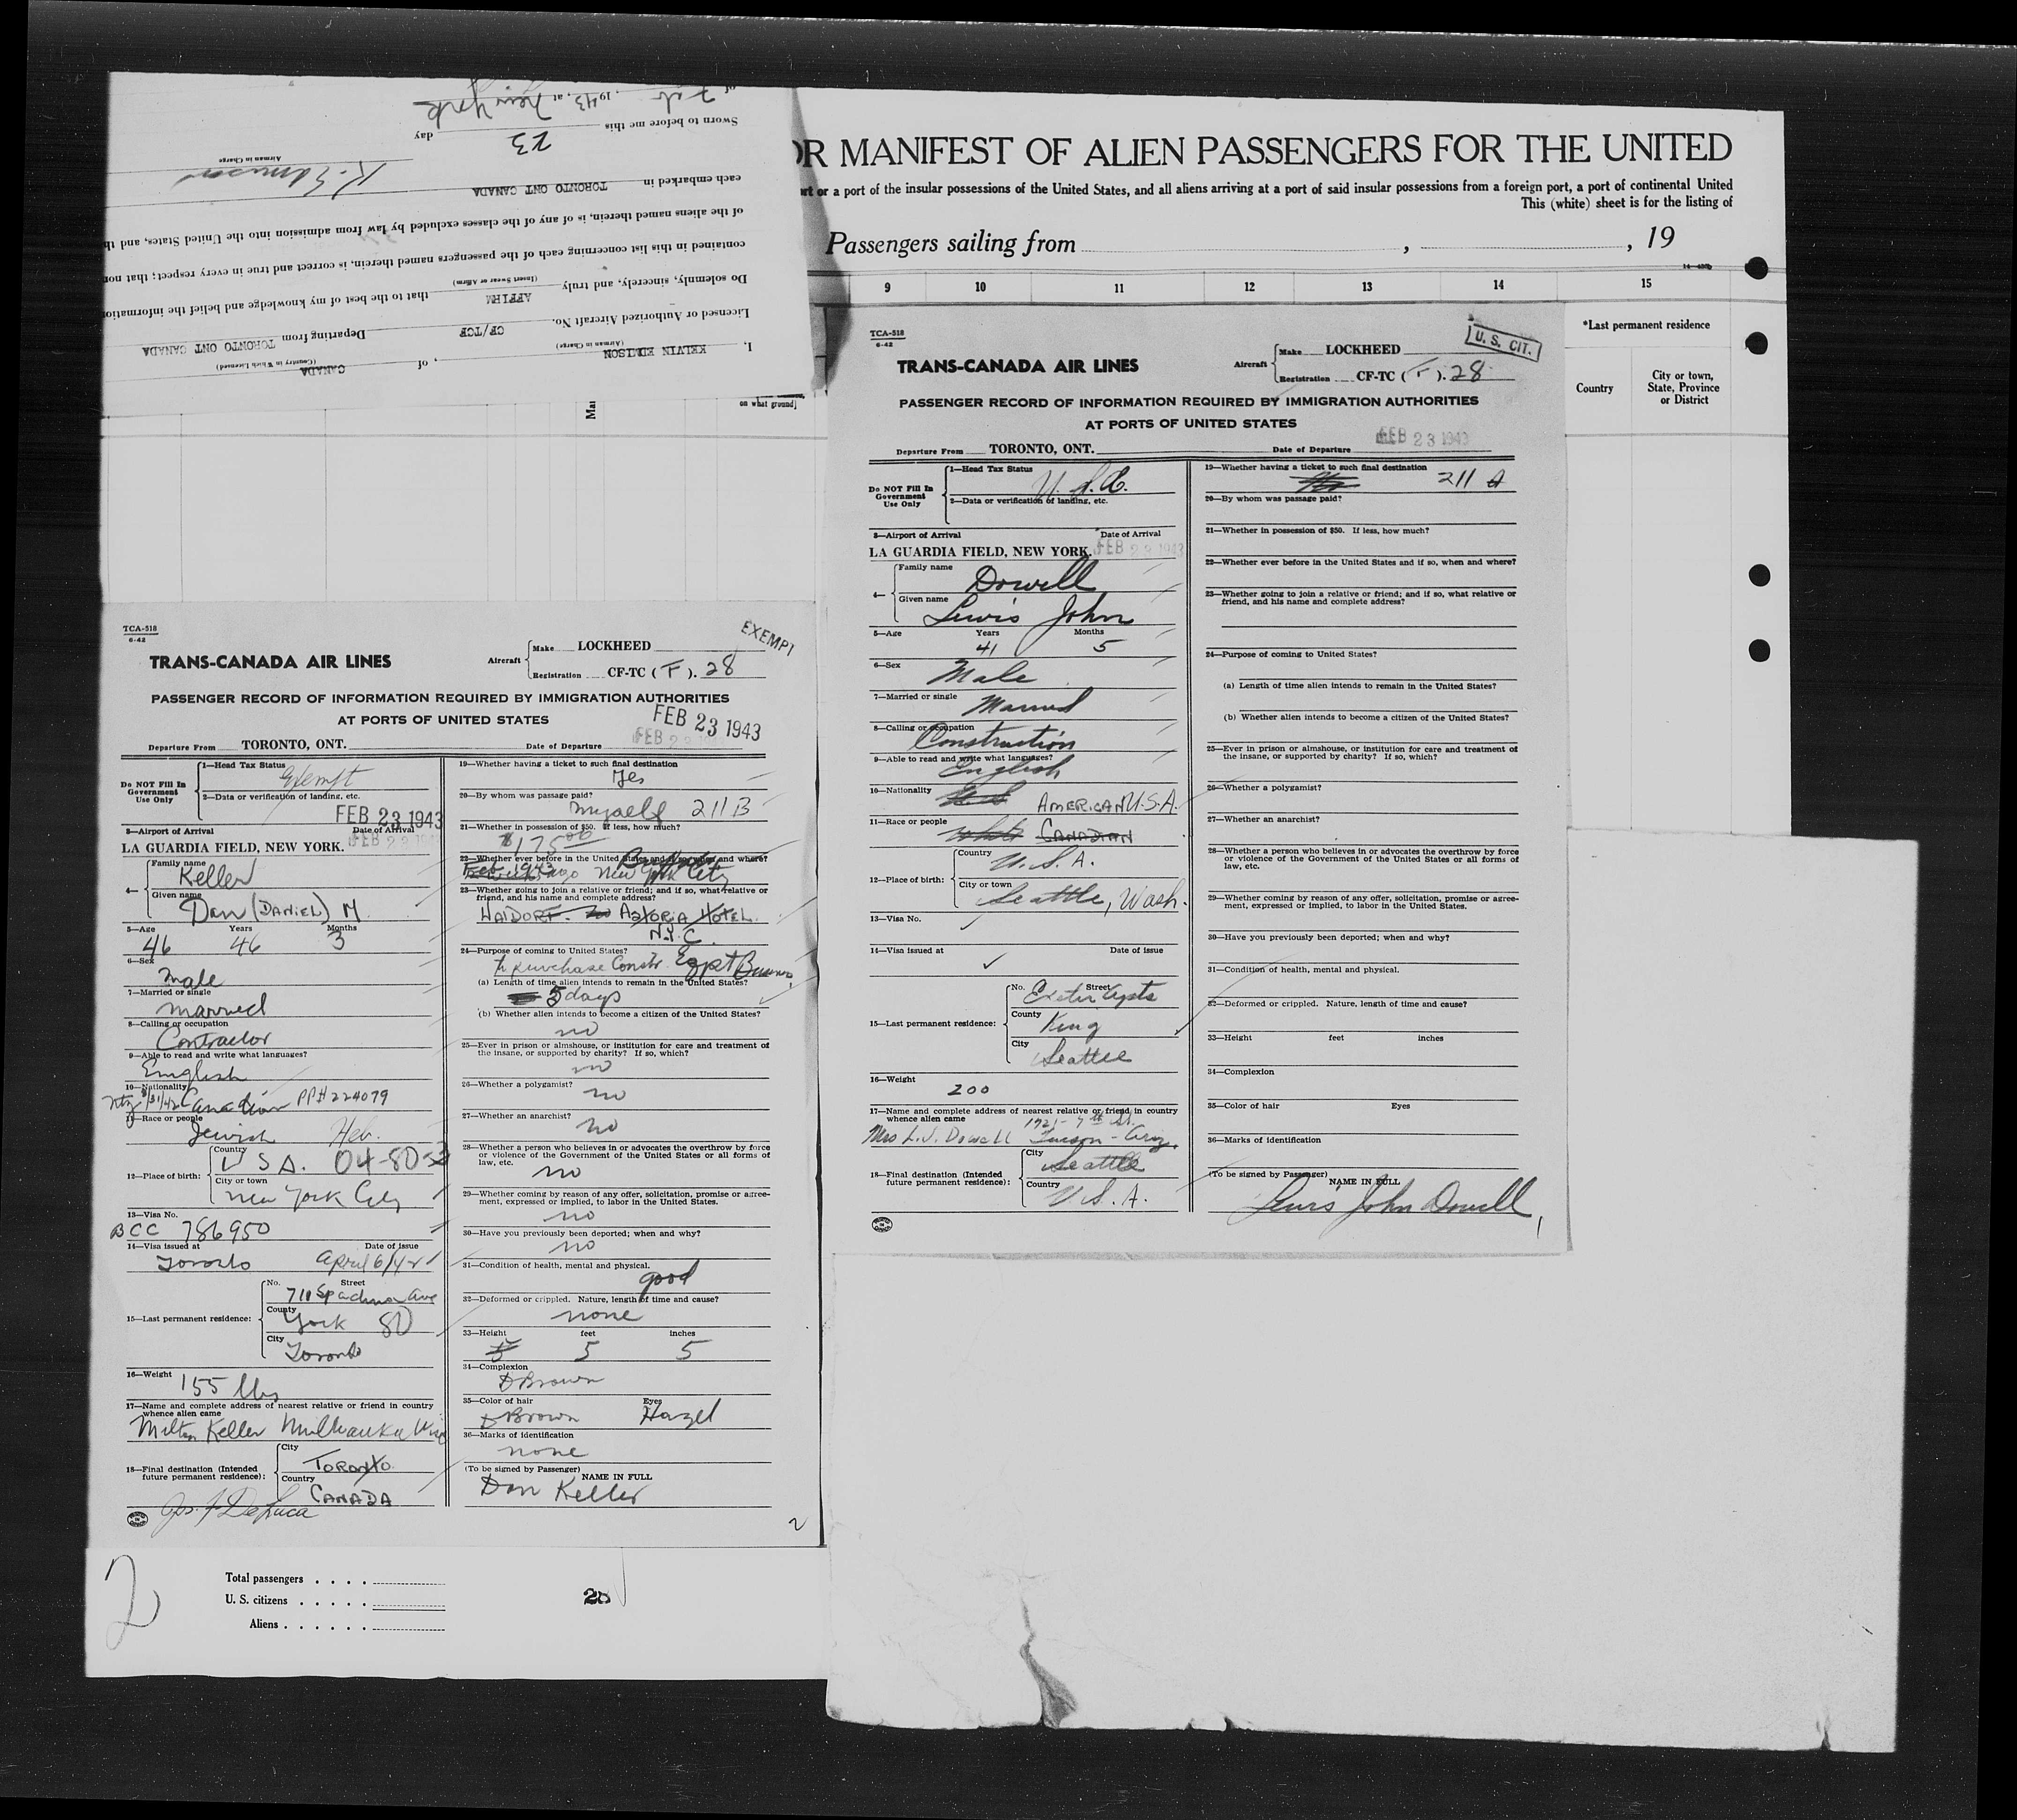 of Feb , 1943 , at New York
Sworn to before me this 23 day
Airman in Charge
each embarked in TORONTO ONT CANADA
of the aliens named therein, is of any of the classes excluded by law from admission into the United States, and th
contained in this list concerning each of the passengers named therein, is correct and true in every respect; that non
Do solemnly, sincerely, and truly AFFIRM that to the best of my knowledge and belief the information
(Insert Swear or Affirm)
Licensed or Authorized Aircraft No. CF/TCF Departing from TORONTO ONT CANADA
(Airman in Charge) (Country in Which Licensed)
I, KELVIN EDMISON , of CANADA
on what ground]
OR MANIFEST OF ALIEN PASSENGERS FOR THE UNITED
rt or a port of the insular possessions of the United States, and all aliens arriving at a port of said insular possessions from a foreign port, a port of continental United
This (white) sheet is for the listing of
Passengers sailing from , , 19
9 10 11 12 13 14 15
*Last permanent residence
Country
City or town, State, Province or District
TCA-518
6-42
TRANS-CANADA AIR LINES
Aircraft
Make LOCKHEED
Registration CF-TC (F). 28
EXEMPT
PASSENGER RECORD OF INFORMATION REQUIRED BY IMMIGRATION AUTHORITIES
AT PORTS OF UNITED STATES
FEB 23 1943
Departure From TORONTO, ONT. Date of Departure
Do NOT Fill In
Government
Use Only
1—Head Tax Status
Exempt
2—Data or verification of landing, etc.
FEB 23 1943
3—Airport of Arrival Date of Arrival
LA GUARDIA FIELD, NEW YORK.
4—
Family name
Keller
Given name
Dan (DANIEL) M.
5—Age Years Months
46 46 3
6—Sex
Male
7—Married or single
Married
8—Calling or occupation
Contractor
9—Able to read and write what languages?
English
10—Nationality
Canadian PP# 224079
11—Race or people
Jewish Heb.
12—Place of birth:
Country
U S A.
City or town
New York City
13—Visa No.
BCC 786950
14—Visa issued at Date of issue
Toronto April 6/42
15—Last permanent residence:
No. Street
711 Spadina Ave
County
York 80
City
Toronto
16—Weight
155 lbs
17—Name and complete address of nearest relative or friend in country
whence alien came
Milton Keller Milwaukee Wisc
18—Final destination (Intended
future permanent residence):
City
TORONTO.
Country
CANADA
Jos. F. DeLuca
19—Whether having a ticket to such final destination
Yes
20—By whom was passage paid?
Myself 211 B
21—Whether in possession of $50. If less, how much?
$175.00
22—Whether ever before in the United States and if so, when and where?
New York City
23—Whether going to join a relative or friend; and if so, what relative or
friend, and his name and complete address?
WALDORF ASTORIA HOTEL.
N.Y.C.
24—Purpose of coming to United States?
To purchase Constr. Eqpt Business
(a) Length of time alien intends to remain in the United States?
5 days
(b) Whether alien intends to become a citizen of the United States?
no
25—Ever in prison or almshouse, or institution for care and treatment of
the insane, or supported by charity? If so, which?
no
26—Whether a polygamist?
no
27—Whether an anarchist?
no
28—Whether a person who believes in or advocates the overthrow by force
or violence of the Government of the United States or all forms of
law, etc.
no
29—Whether coming by reason of any offer, solicitation, promise or agree-
ment, expressed or implied, to labor in the United States.
no
30—Have you previously been deported; when and why?
no
31—Condition of health, mental and physical.
good
32—Deformed or crippled. Nature, length of time and cause?
none
33—Height feet inches
5 5
34—Complexion
D Brown
35—Color of hair Eyes
D Brown Hazel
36—Marks of identification
none
(To be signed by Passenger) NAME IN FULL
Dan Keller
2
2
Total passengers . . . .
U. S. citizens . . . . .
Aliens . . . . . .
TCA-518
6-42
TRANS-CANADA AIR LINES
Aircraft
Make LOCKHEED
Registration CF-TC (F). 28
U. S. CIT.
PASSENGER RECORD OF INFORMATION REQUIRED BY IMMIGRATION AUTHORITIES
AT PORTS OF UNITED STATES
FEB 23 1943
Departure From TORONTO, ONT. Date of Departure
Do NOT Fill In
Government
Use Only
1—Head Tax Status
2—Data or verification of landing, etc.
3—Airport of Arrival Date of Arrival
LA GUARDIA FIELD, NEW YORK. FEB 23 1943
4—
Family name
Dowell
Given name
Lewis John
5—Age Years Months
41 5
6—Sex
Male
7—Married or single
Married
8—Calling or occupation
Construction
9—Able to read and write what languages?
English
10—Nationality
AMERICAN U.S.A.
11—Race or people
white CANADIAN
12—Place of birth:
Country
U. S. A.
City or town
Seattle, Wash.
13—Visa No.
14—Visa issued at Date of issue
15—Last permanent residence:
No. Street
Exeter Apts
County
King
City
Seattle
16—Weight
200
17—Name and complete address of nearest relative or friend in country
whence alien came
Mrs L. J. Dowell 1921-7th St. Tucson - Ariz.
18—Final destination (Intended
future permanent residence):
City
Seattle
Country
U. S. A.
19—Whether having a ticket to such final destination
211 A
20—By whom was passage paid?
21—Whether in possession of $50. If less, how much?
22—Whether ever before in the United States and if so, when and where?
23—Whether going to join a relative or friend; and if so, what relative or
friend, and his name and complete address?
24—Purpose of coming to United States?
(a) Length of time alien intends to remain in the United States?
(b) Whether alien intends to become a citizen of the United States?
25—Ever in prison or almshouse, or institution for care and treatment of
the insane, or supported by charity? If so, which?
26—Whether a polygamist?
27—Whether an anarchist?
28—Whether a person who believes in or advocates the overthrow by force
or violence of the Government of the United States or all forms of
law, etc.
29—Whether coming by reason of any offer, solicitation, promise or agree-
ment, expressed or implied, to labor in the United States.
30—Have you previously been deported; when and why?
31—Condition of health, mental and physical.
32—Deformed or crippled. Nature, length of time and cause?
33—Height feet inches
34—Complexion
35—Color of hair Eyes
36—Marks of identification
(To be signed by Passenger) NAME IN FULL
Lewis John Dowell